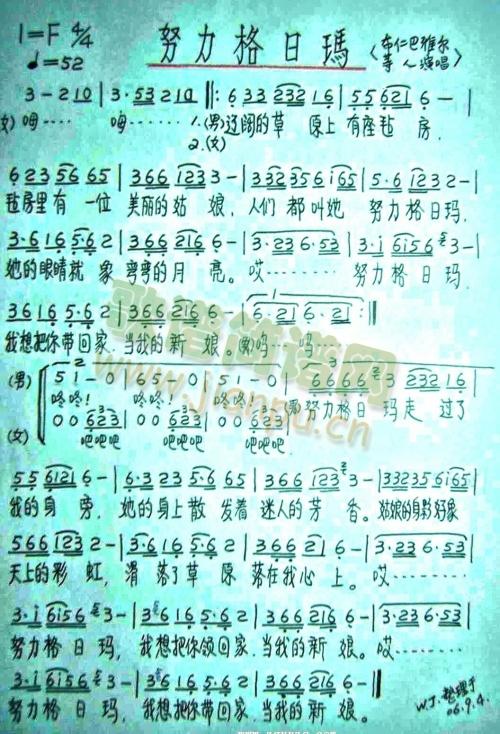 1=F 4/4
♩=52
努力格日瑪
〈布仁巴雅尔
等人演唱〉
3-210|3·53210|‖:6332321 6|55621 6-|
女)呣…… 呣…… 1.(男)辽阔的草 原上 有座毡 房.
2.(女)
623 56 65|366 123 3-|332356165|5·6 123 2-|
毡房里有一位 美丽的姑 娘,人们 都叫她 努力格日玛.
3·6 16 5·6 2|366 216 6-|3·23 6·53|3·i 6156 3-|
她的眼睛就 象弯弯的月 亮。哎……… 努力格日玛.
3616 5·6 2|366 216 6-|6·21 6·21:‖
我想把你带回家,当我的新 娘。(男)呜… 呜…
(男) 51-0|65-0|51-0|6666 3 232 16|
咚咚! 咚咚! 咚咚! (男)努力格日 玛走 过了
(女) 00623|00623|00623
吧吧吧 吧吧吧 吧吧吧
55 6121 6-|6·3 23 5·6 65|366 123 3-|332356165|
我的身 旁, 她的身上散 发着 迷人的芳 香。姑娘的身影好象
566 123 2-|3·6 16 5·6 2|366 21 6-|3·23 6·53|
天上的彩 虹, 滑 落了草原 落在我心 上。哎………
3·i 6156 3-|3616 5·6 2|366 216 6-|3·23 6·53|
努力格日玛, 我想把你领回家,当我的新 娘。哎………
3·i 6156 3-|3616 5·6 2|366 216 6-‖
努力格日玛, 我想把你带回家,当我的新 娘。
W.J.整理于
06.9.4.
歌谱简谱网
www.jianpu.cn